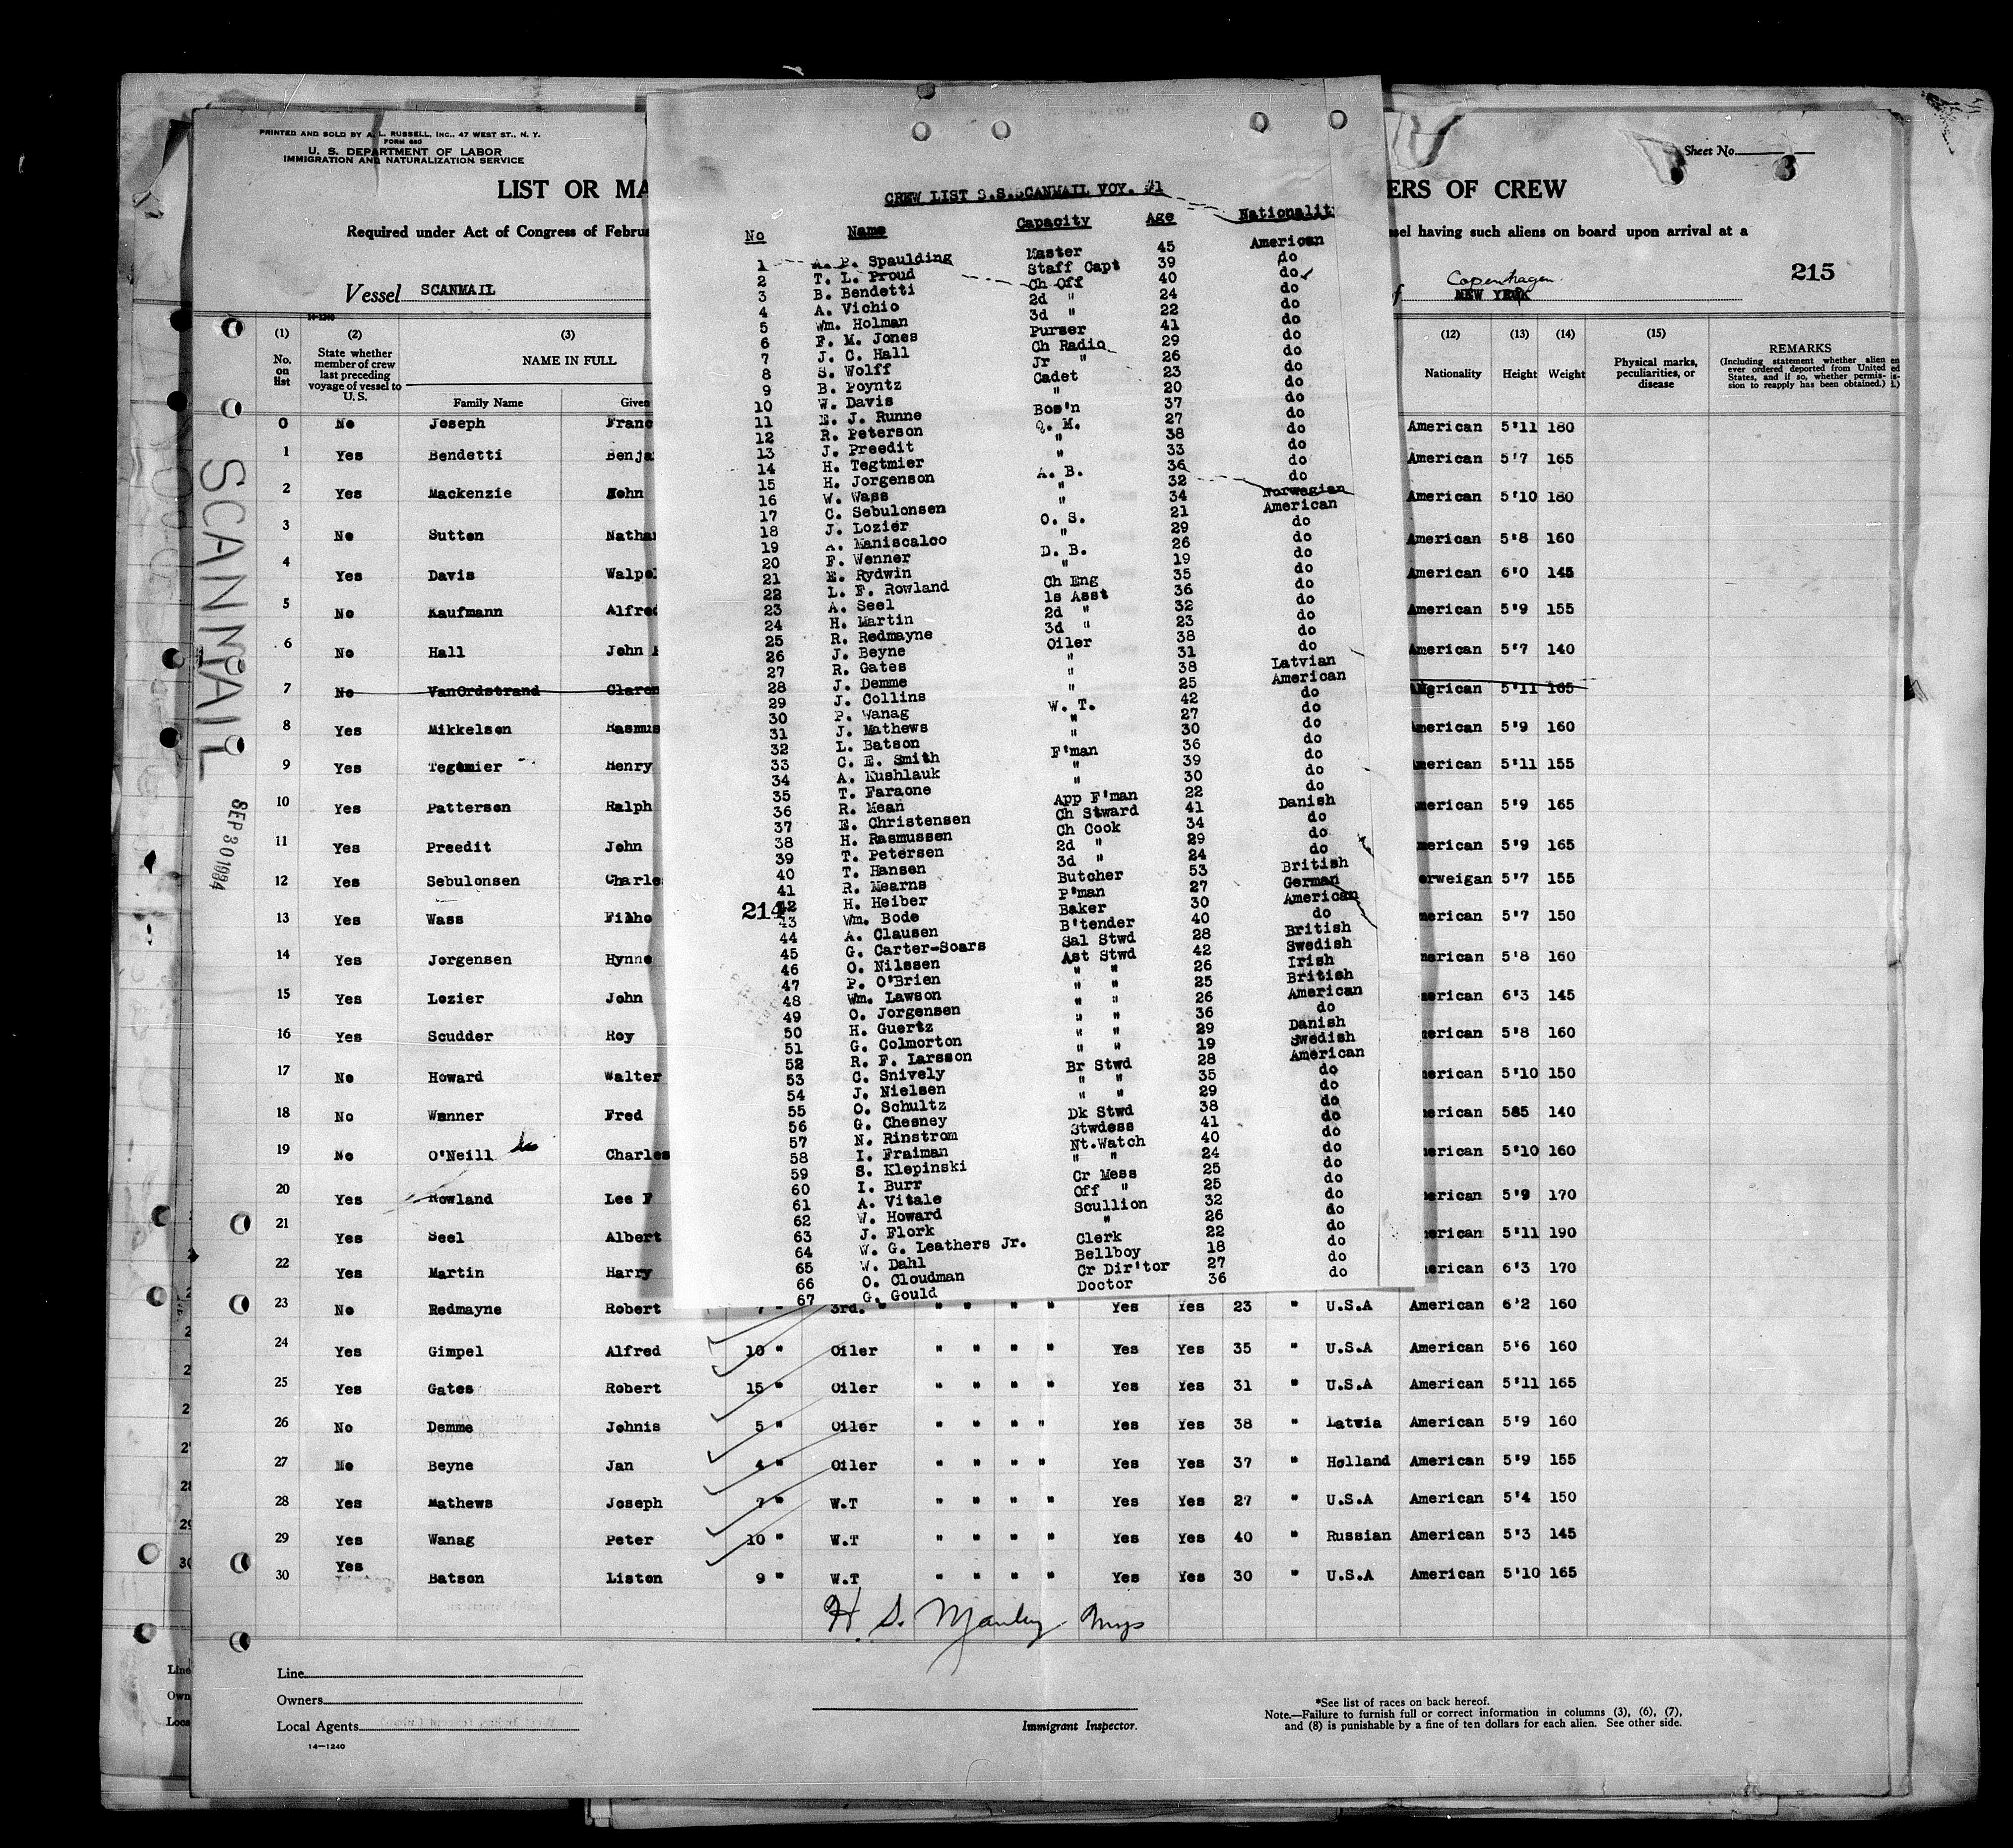 PRINTED AND SOLD BY A. L. RUSSELL, INC., 47 WEST ST., N. Y.
FORM 680
U. S. DEPARTMENT OF LABOR
IMMIGRATION AND NATURALIZATION SERVICE
Sheet No. 3
LIST OR MA
ERS OF CREW
Required under Act of Congress of Februa
sel having such aliens on board upon arrival at a
Vessel SCANMAIL
Copenhagen
NEW YORK
215
14-1240
(1) (2) (3) (12) (13) (14) (15)
No. on list
State whether member of crew last preceding voyage of vessel to U. S.
NAME IN FULL
Family Name Given
Nationality Height Weight
Physical marks, peculiarities, or disease
REMARKS
(Including statement whether alien ever ordered deported from United States, and if so, whether permission to reapply has been obtained.)
SCANMAIL
SEP 30 1934
CREW LIST S.S.SCANMAIL VOY. #1
No Name Capacity Age Nationalit
1 A. B. Spaulding Master 45 American
2 T. L. Proud Staff Capt 39 do
3 B. Bendetti Ch Off 40 do
4 A. Vichio 2d " 24 do
5 Wm. Holman 3d " 22 do
6 F. M. Jones Purser 41 do
7 J. C. Hall Ch Radio 29 do
8 S. Wolff Jr " 26 do
9 B. Poyntz Cadet 23 do
10 W. Davis " 20 do
11 E. J. Runne Bos'n 37 do
12 R. Peterson Q. M. 27 do
13 J. Preedit " 38 do
14 H. Tegtmier " 33 do
15 H. Jorgenson A. B. 36 do
16 W. Wass " 32 do
17 C. Sebulonsen " 34 Norwegian
18 J. Lozier O. S. 21 American
19 A. Maniscalco " 29 do
20 F. Wenner D. B. 26 do
21 E. Rydwin " 19 do
22 L. F. Rowland Ch Eng 35 do
23 A. Seel 1s Asst 36 do
24 H. Martin 2d " 32 do
25 R. Redmayne 3d " 23 do
26 J. Beyne Oiler 38 do
27 R. Gates " 31 do
28 J. Demme " 38 Latvian
29 J. Collins " 25 American
30 P. Wanag W. T. 42 do
31 J. Mathews " 27 do
32 L. Batson " 30 do
33 C. E. Smith F'man 36 do
34 A. Kushlauk " 39 do
35 T. Faraone " 30 do
36 R. Mean App F'man 22 do
37 E. Christensen Ch Stward 41 Danish
38 H. Rasmussen Ch Cook 34 do
39 T. Petersen 2d " 29 do
40 T. Hansen 3d " 24 do
41 R. Mearns Butcher 53 British
42 H. Heiber P'man 27 German
214
43 Wm. Bode Baker 30 American
44 A. Clausen B'tender 40 do
45 G. Carter-Soars Sal Stwd 28 British
46 O. Nilssen Ast Stwd 42 Swedish
47 P. O'Brien " " 26 Irish
48 Wm. Lawson " " 25 British
49 O. Jorgensen " " 26 American
50 H. Guertz " " 36 do
51 G. Colmorton " " 29 Danish
52 R. F. Larsson " " 19 Swedish
53 C. Snively Br Stwd 28 American
54 J. Nielsen " " 35 do
55 O. Schultz " " 29 do
56 G. Chesney Dk Stwd 38 do
57 N. Rinstrom Stwdess 41 do
58 I. Fraiman Nt.Watch 40 do
59 S. Klepinski " " 24 do
60 I. Burr Cr Mess 25 do
61 A. Vitale Off " 25 do
62 W. Howard Scullion 32 do
63 J. Flork " 26 do
64 W. G. Leathers Jr. Clerk 22 do
65 W. Dahl Bellboy 18 do
66 O. Cloudman Cr Dir'tor 27 do
67 G. Gould Doctor 36 do
0 No Joseph Franc American 5'11 180
1 Yes Bendetti Benja American 5'7 165
2 Yes Mackenzie John American 5'10 180
3 No Sutton Nathan American 5'8 160
4 Yes Davis Walpol American 6'0 145
5 No Kaufmann Alfred American 5'9 155
6 No Hall John American 5'7 140
7 No VanOrdstrand Claren American 5'11 165
8 Yes Mikkelson Rasmus American 5'9 160
9 Yes Tegtmier Henry American 5'11 155
10 Yes Patterson Ralph merican 5'9 165
11 Yes Preedit John merican 5'9 165
12 Yes Sebulonsen Charle orweigan 5'7 155
13 Yes Wass Filho merican 5'7 150
14 Yes Jorgensen Hynne merican 5'8 160
15 Yes Lozier John merican 6'3 145
16 Yes Scudder Roy merican 5'8 160
17 No Howard Walter merican 5'10 150
18 No Wanner Fred merican 585 140
19 No O'Neill Charles merican 5'10 160
20 Yes Rowland Lee F merican 5'9 170
21 Yes Seel Albert merican 5'11 190
22 Yes Martin Harry merican 6'3 170
23 No Redmayne Robert 7 " 3rd. " " " " " Yes Yes 23 " U.S.A American 6'2 160
24 Yes Gimpel Alfred 10 " Oiler " " " " Yes Yes 35 " U.S.A American 5'6 160
25 Yes Gates Robert 15 " Oiler " " " " Yes Yes 31 " U.S.A American 5'11 165
26 No Demme Johnis 5 " Oiler " " " " Yes Yes 38 " Latvia American 5'9 160
27 No Beyne Jan 4 " Oiler " " " " Yes Yes 37 " Holland American 5'9 155
28 Yes Mathews Joseph 7 " W.T " " " " Yes Yes 27 " U.S.A American 5'4 150
29 Yes Wanag Peter 10 " W.T " " " " Yes Yes 40 " Russian American 5'3 145
30 Yes Batson Liston 9 " W.T " " " " Yes Yes 30 " U.S.A American 5'10 165
H. S. Manley
Line
Owners
Local Agents
14—1240
Immigrant Inspector.
*See list of races on back hereof.
Note.—Failure to furnish full or correct information in columns (3), (6), (7),
and (8) is punishable by a fine of ten dollars for each alien. See other side.